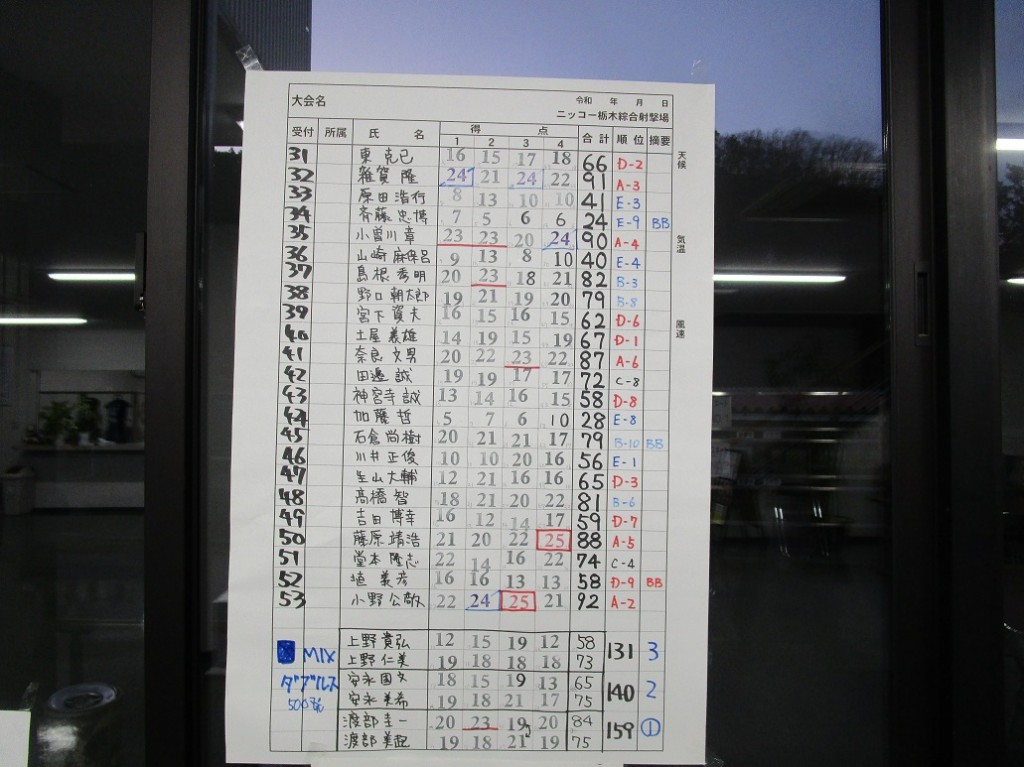 大会名
令和 年 月 日
ニッコー栃木綜合射撃場
受付 所属 氏 名 得 点 合計 順位 摘要
1 2 3 4
天候
気温
風速
31 東 克己 16 15 17 18 66 D-2
32 雑賀 隆 24 21 24 22 91 A-3
33 原田 浩行 8 13 10 10 41 E-3
34 斉藤 忠博 7 5 6 6 24 E-9 BB
35 小曽川 章 23 23 20 24 90 A-4
36 山崎 麻保呂 9 13 8 10 40 E-4
37 島根 秀明 20 23 18 21 82 B-3
38 野口 朝太郎 19 21 19 20 79 B-8
39 宮下 資夫 16 15 16 15 62 D-6
40 土屋 義雄 14 19 15 19 67 D-1
41 奈良 文男 20 22 23 22 87 A-6
42 田邊 誠 19 19 17 17 72 C-8
43 神宮寺 誠 13 14 16 15 58 D-8
44 加藤 哲 5 7 6 10 28 E-8
45 石倉 尚樹 20 21 21 17 79 B-10 BB
46 川井 正俊 10 10 20 16 56 E-1
47 生山 大輔 12 21 16 16 65 D-3
48 高橋 智 18 21 20 22 81 B-6
49 吉田 博幸 16 12 14 17 59 D-7
50 藤原 靖浩 21 20 22 25 88 A-5
51 堂本 隆志 22 14 16 22 74 C-4
52 義孝 16 16 13 13 58 D-9 BB
53 小野 公敬 22 24 25 21 92 A-2
MIX
ダブルス
500気
上野 貴弘 12 15 19 12 58
上野 仁美 19 18 18 18 73
131 3
安永 国文 18 15 19 13 65
安永 美希 19 18 21 17 75
140 2
渡部 圭一 20 23 19 20 84
渡部 美起 19 18 21 19 75
159 ①